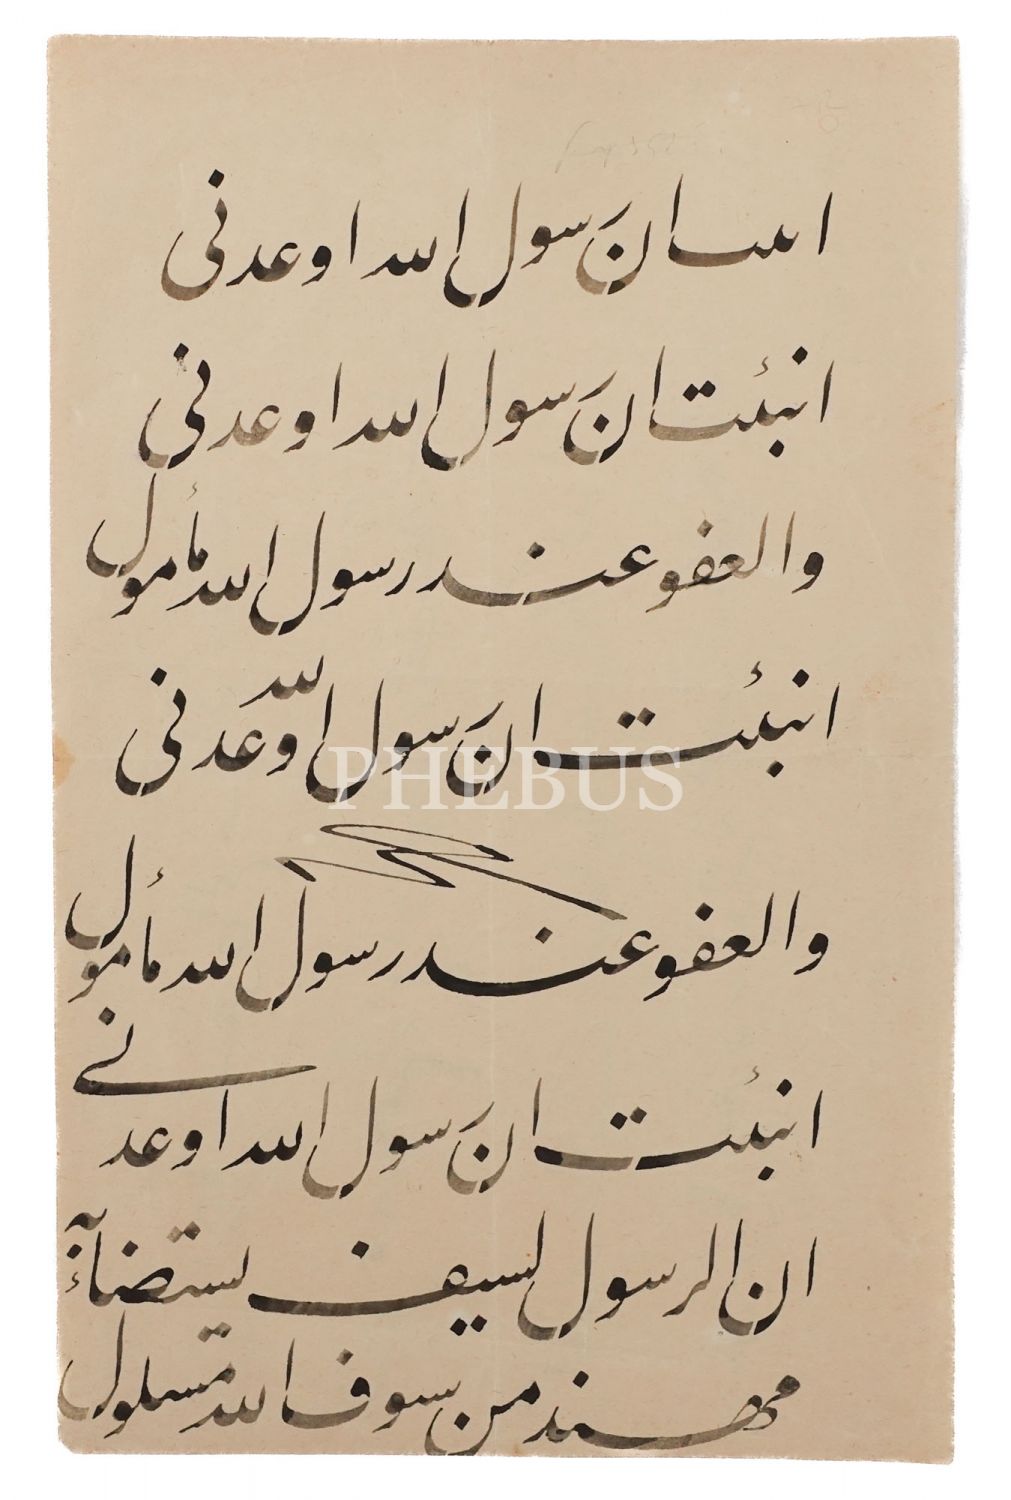 اٮٮٮٮ ان رسول الله اوعدنى
انبئت ان رسول الله اوعدنى
والعفو عند رسول الله مأمول
انبئت ان رسول الله اوعدنى
PHEBUS
والعفو عند رسول الله مأمول
انبئت ان رسول الله اوعدنى
ان الرسول لسيف يستضاء به
مهند من سيوف الله مسلول